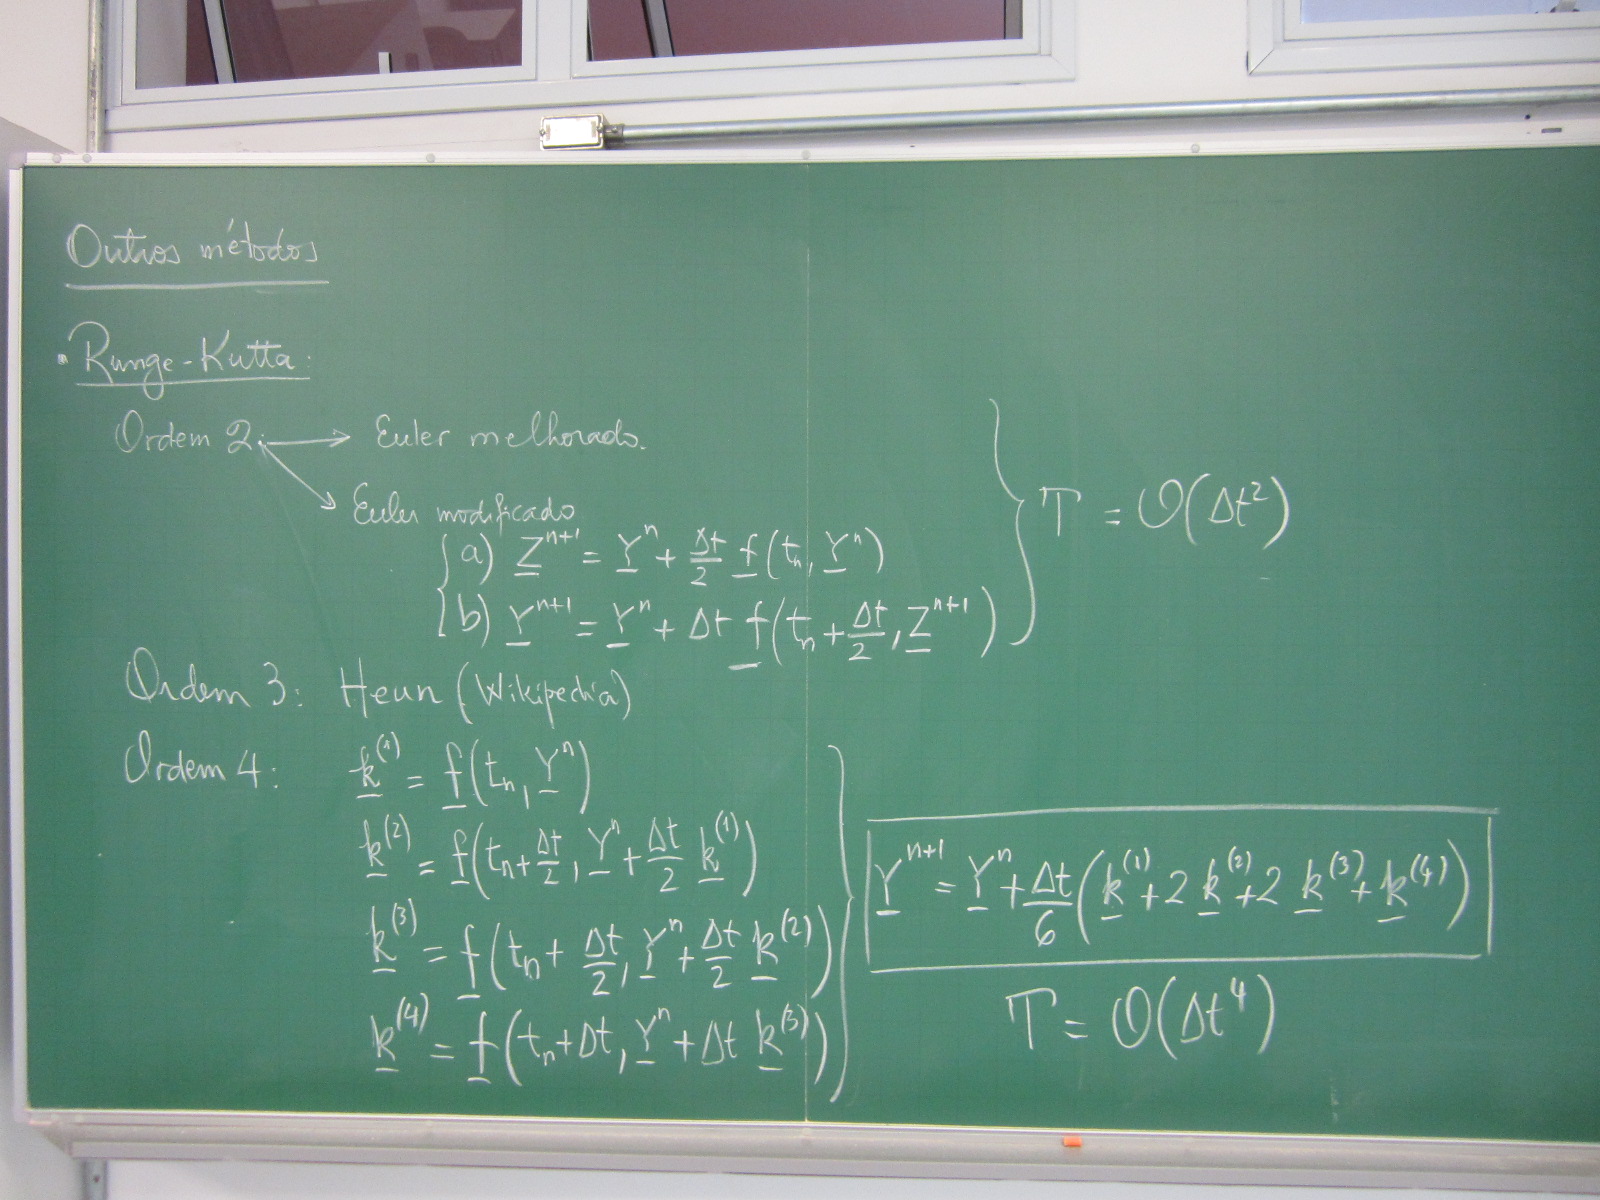 Outros métodos
• Runge-Kutta:
Ordem 2: → Euler melhorado.
↘ Euler modificado
a) Z^{n+1} = Y^n + Δt/2 f(t_n, Y^n)
b) Y^{n+1} = Y^n + Δt f(t_n + Δt/2, Z^{n+1})
T = O(Δt²)
Ordem 3: Heun (Wikipedia)
Ordem 4: k^{(1)} = f(t_n, Y^n)
k^{(2)} = f(t_n + Δt/2, Y^n + Δt/2 k^{(1)})
k^{(3)} = f(t_n + Δt/2, Y^n + Δt/2 k^{(2)})
k^{(4)} = f(t_n + Δt, Y^n + Δt k^{(3)})
Y^{n+1} = Y^n + Δt/6 (k^{(1)} + 2 k^{(2)} + 2 k^{(3)} + k^{(4)})
T = O(Δt⁴)